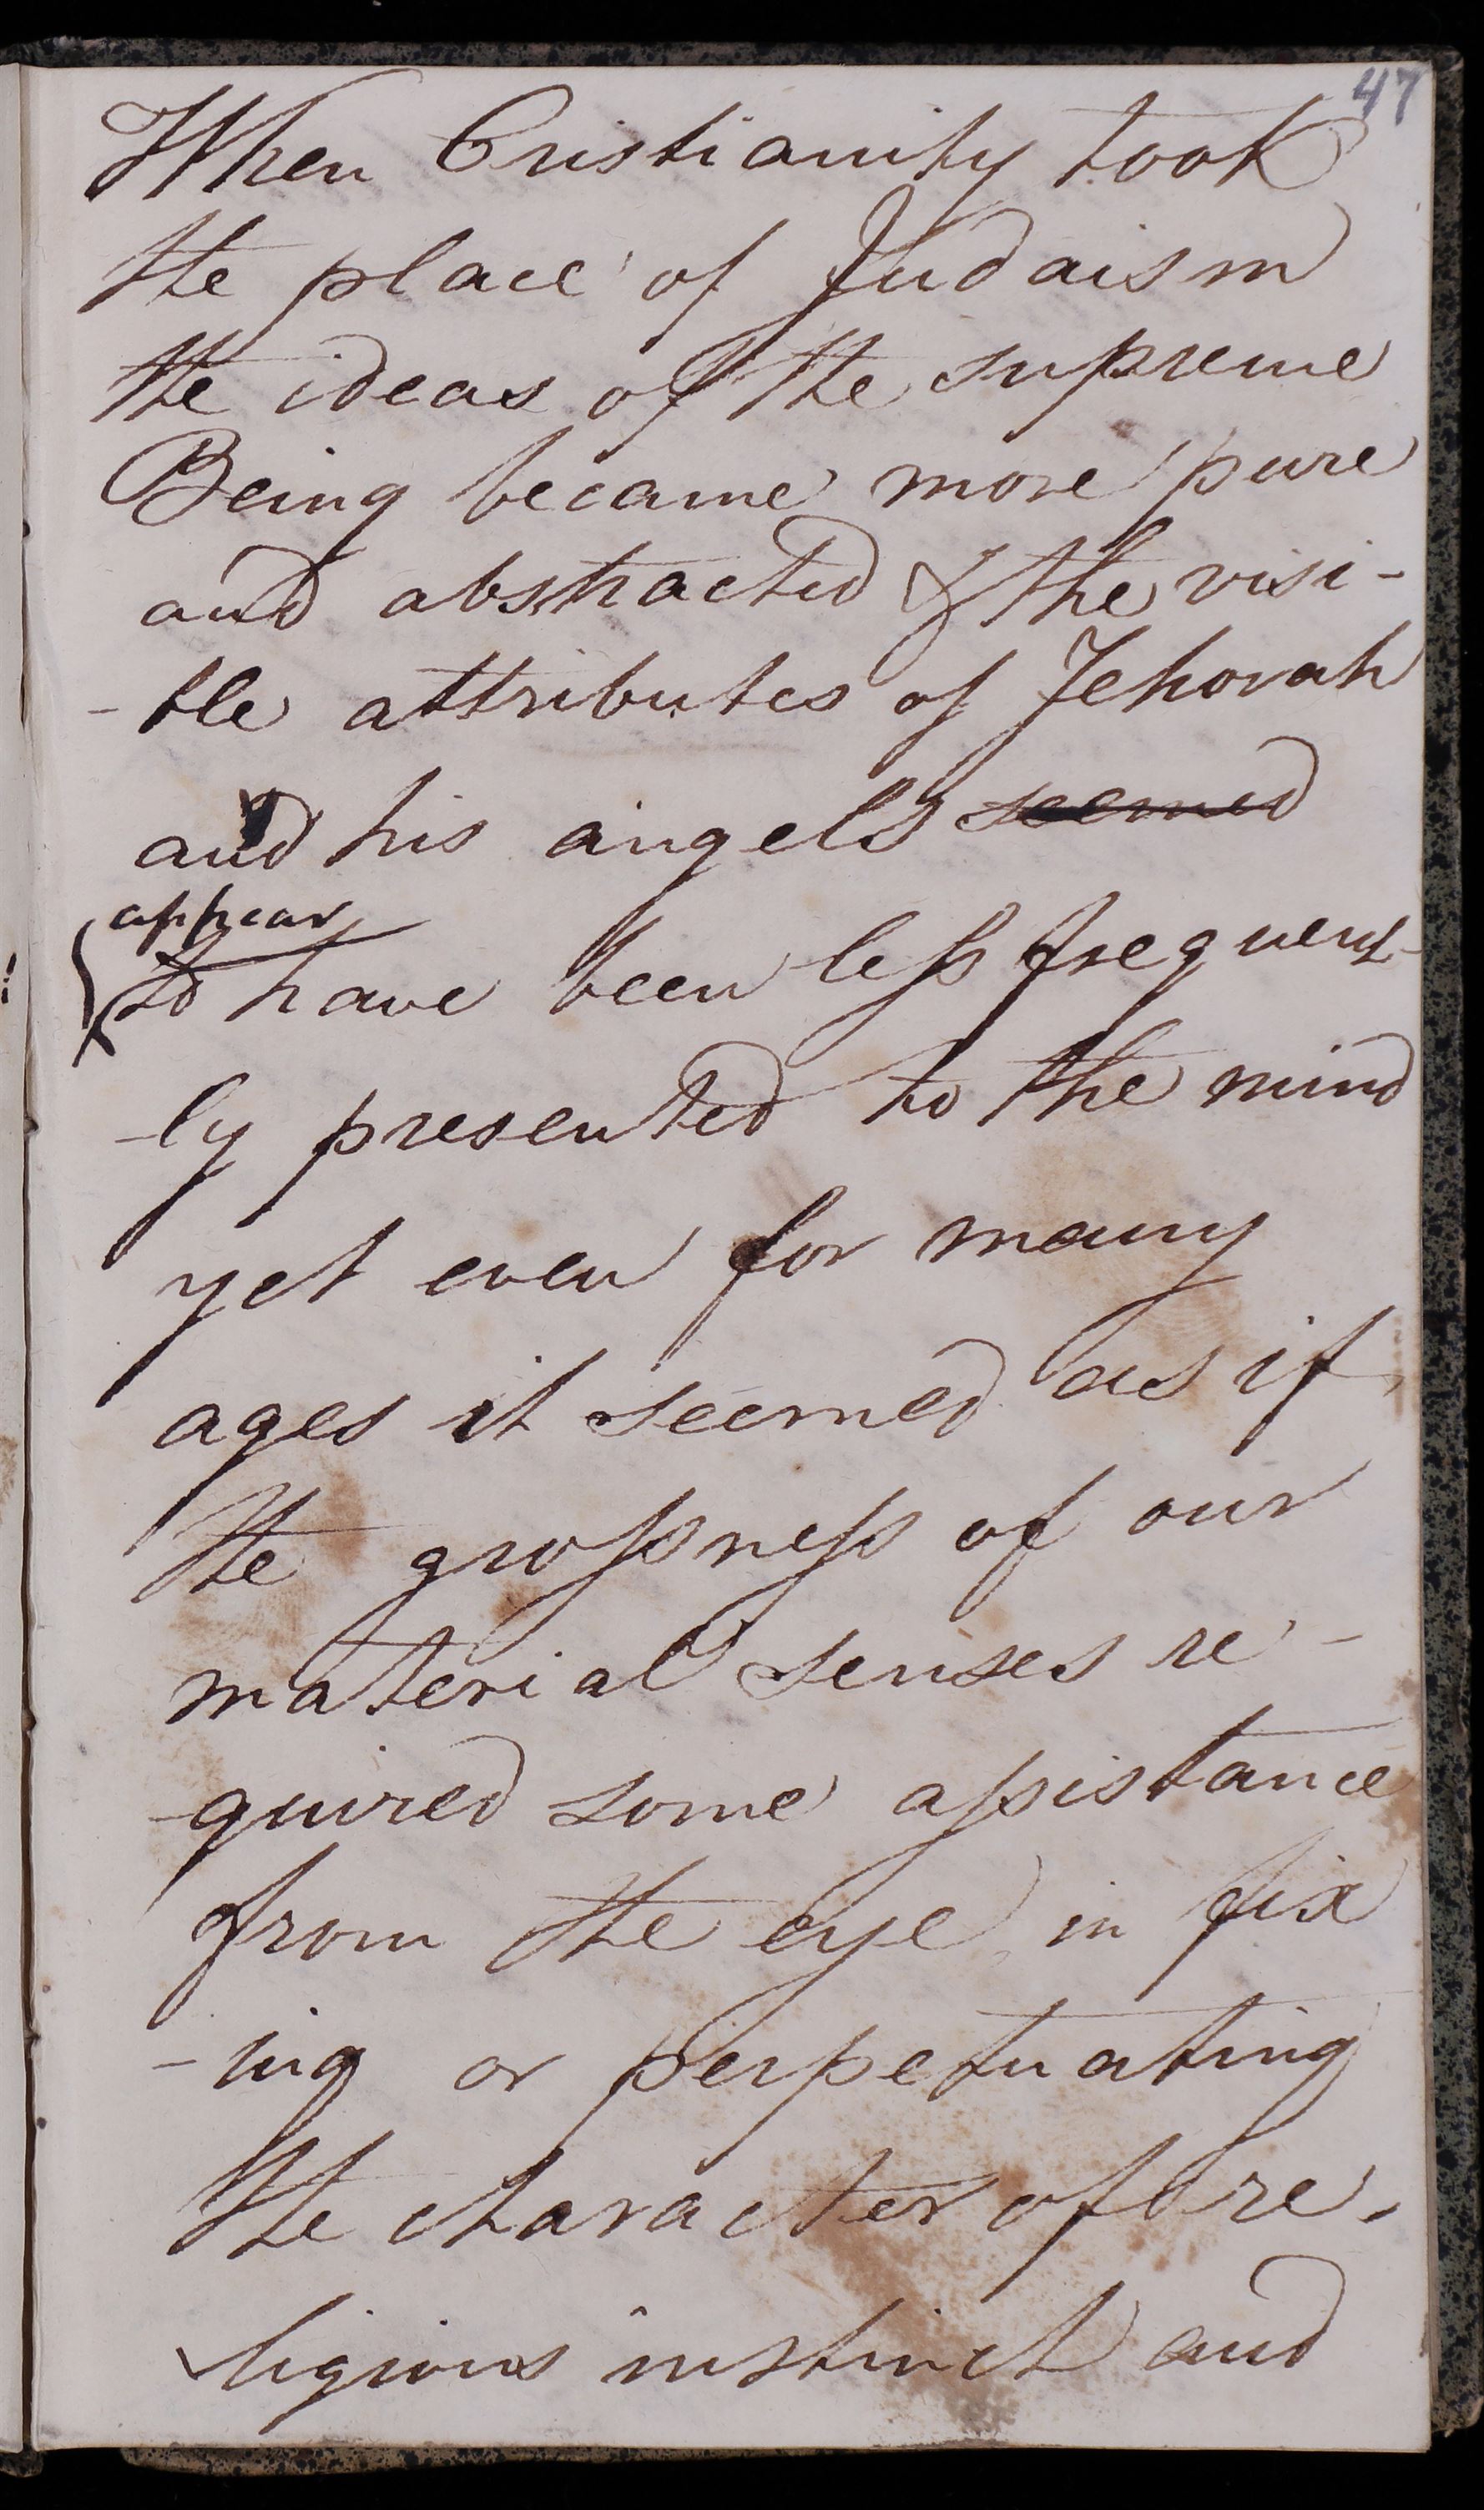 47
When Cristianity took
the place of Judaism
the ideas of the supreme
Being became more pure
and abstracted & the visi-
-ble attributes of Jehovah
and his angels seemed
appear
to have been less frequent-
-ly presented to the mind
yet even for many
ages it seemed as if
the grossness of our
material senses re-
-quired some assistance
from the eye in fix
-ing or perpetuating
the character of re-
ligious instinct and